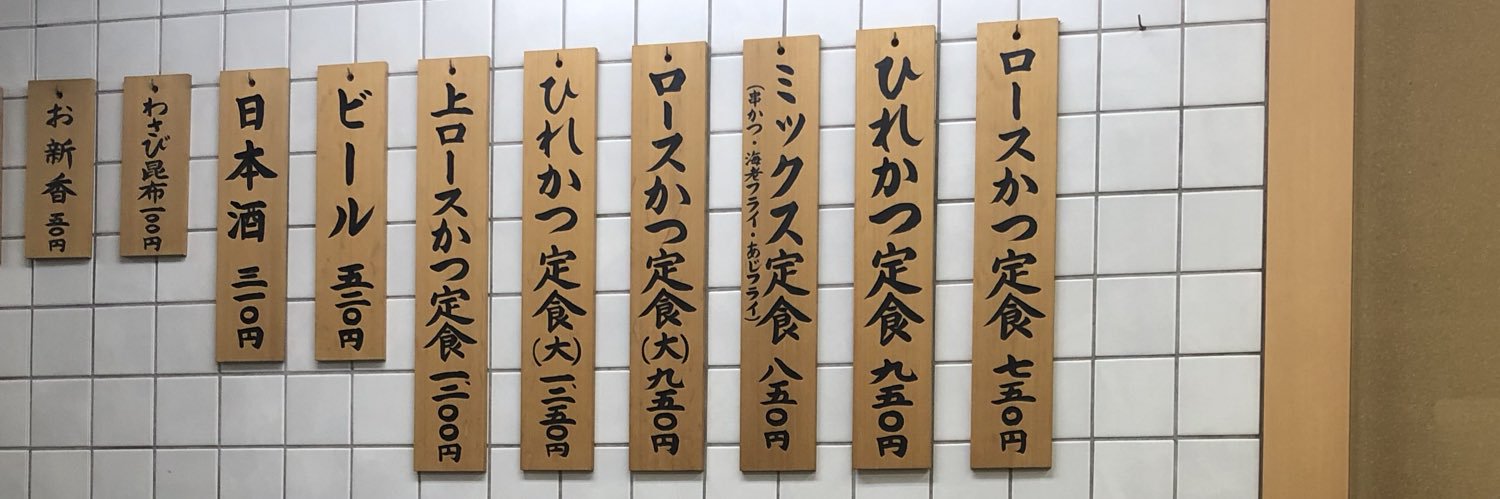 ロースかつ定食 七五〇円
ひれかつ定食 九五〇円
ミックス定食 八五〇円
(串かつ・海老フライ・あじフライ)
ロースかつ定食(大) 九五〇円
ひれかつ定食(大) 一、二五〇円
上ロースかつ定食 一、二〇〇円
ビール 五二〇円
日本酒 三一〇円
わさび昆布 一〇〇円
お新香 五〇円